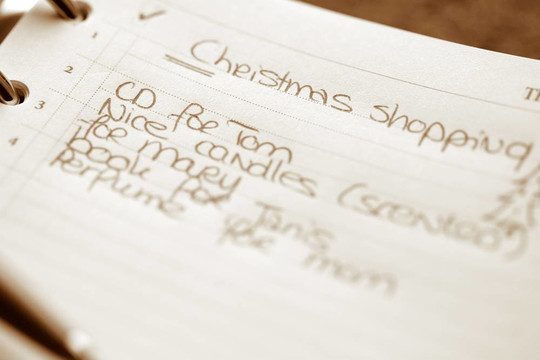 Christmas shopping
1
CD for Tom
2
Nice candles (scented)
3
for Mary
4
Book for Janis
Perfume for mom